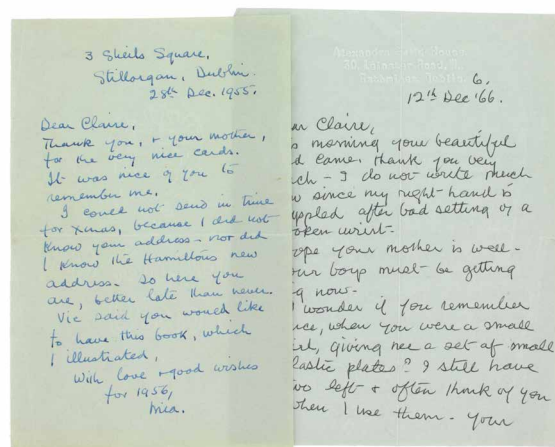 3 Sheils Square,
Stillorgan, Dublin.
28th Dec. 1955.
Dear Claire,
Thank you, + your mother,
for the very nice cards.
It was nice of you to
remember me.
I could not send in time
for Xmas, because I did not
know your address - nor did
I know the Hamiltons new
address. So here you
are, better late than never.
Vic said you would like
to have this book, which
I illustrated,
With love + good wishes
for 1956,
Mia.
6.
12th Dec '66.
Claire,
morning your beautiful
came. Thank you very
- I do not write much
since my right hand is
after bad setting of a
wrist.
your mother is well -
boys must be getting
now.
wonder if you remember
when you were a small
giving me a set of small
plates? I still have
left + often think of you
when I use them. Your